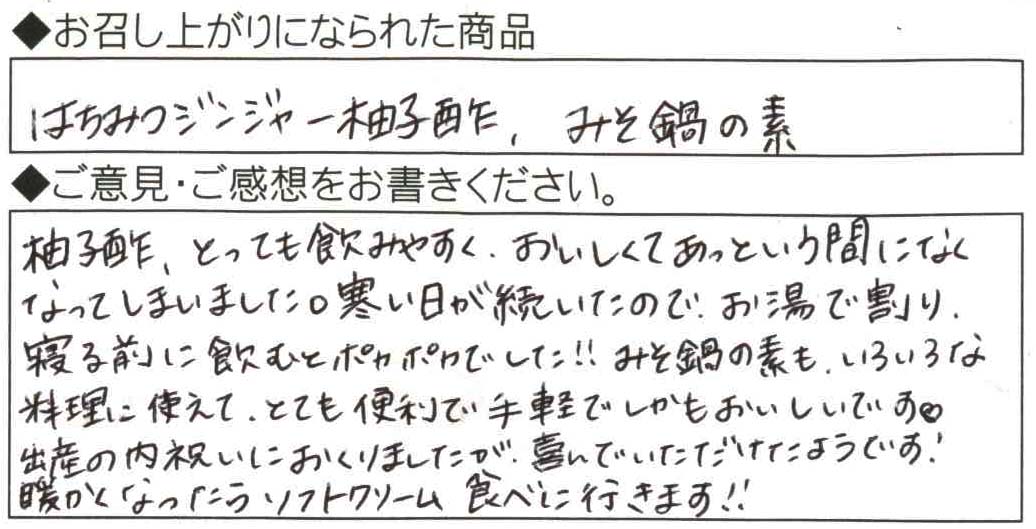 ◆お召し上がりになられた商品
はちみつジンジャー柚子酢, みそ鍋の素
◆ご意見・ご感想をお書きください。
柚子酢、とっても飲みやすく、おいしくてあっという間になく
なってしまいました。寒い日が続いたので、お湯で割り、
寝る前に飲むとポカポカでした!! みそ鍋の素も、いろいろな
料理に使えて、とても便利で手軽でしかもおいしいです♡
出産の内祝いにおくりましたが、喜んでいただけたようです!
暖かくなったらソフトクリーム食べに行きます!!